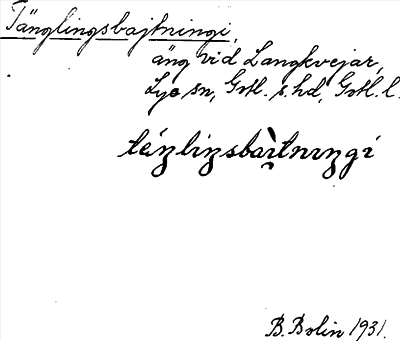 Tänglingsbajtningi,
äng vid Langkvejar,
Lye sn, Gotl. s. hd, Gotl. l.
téŋliŋsbaìtnɪŋgi
B. Bolin 1931.